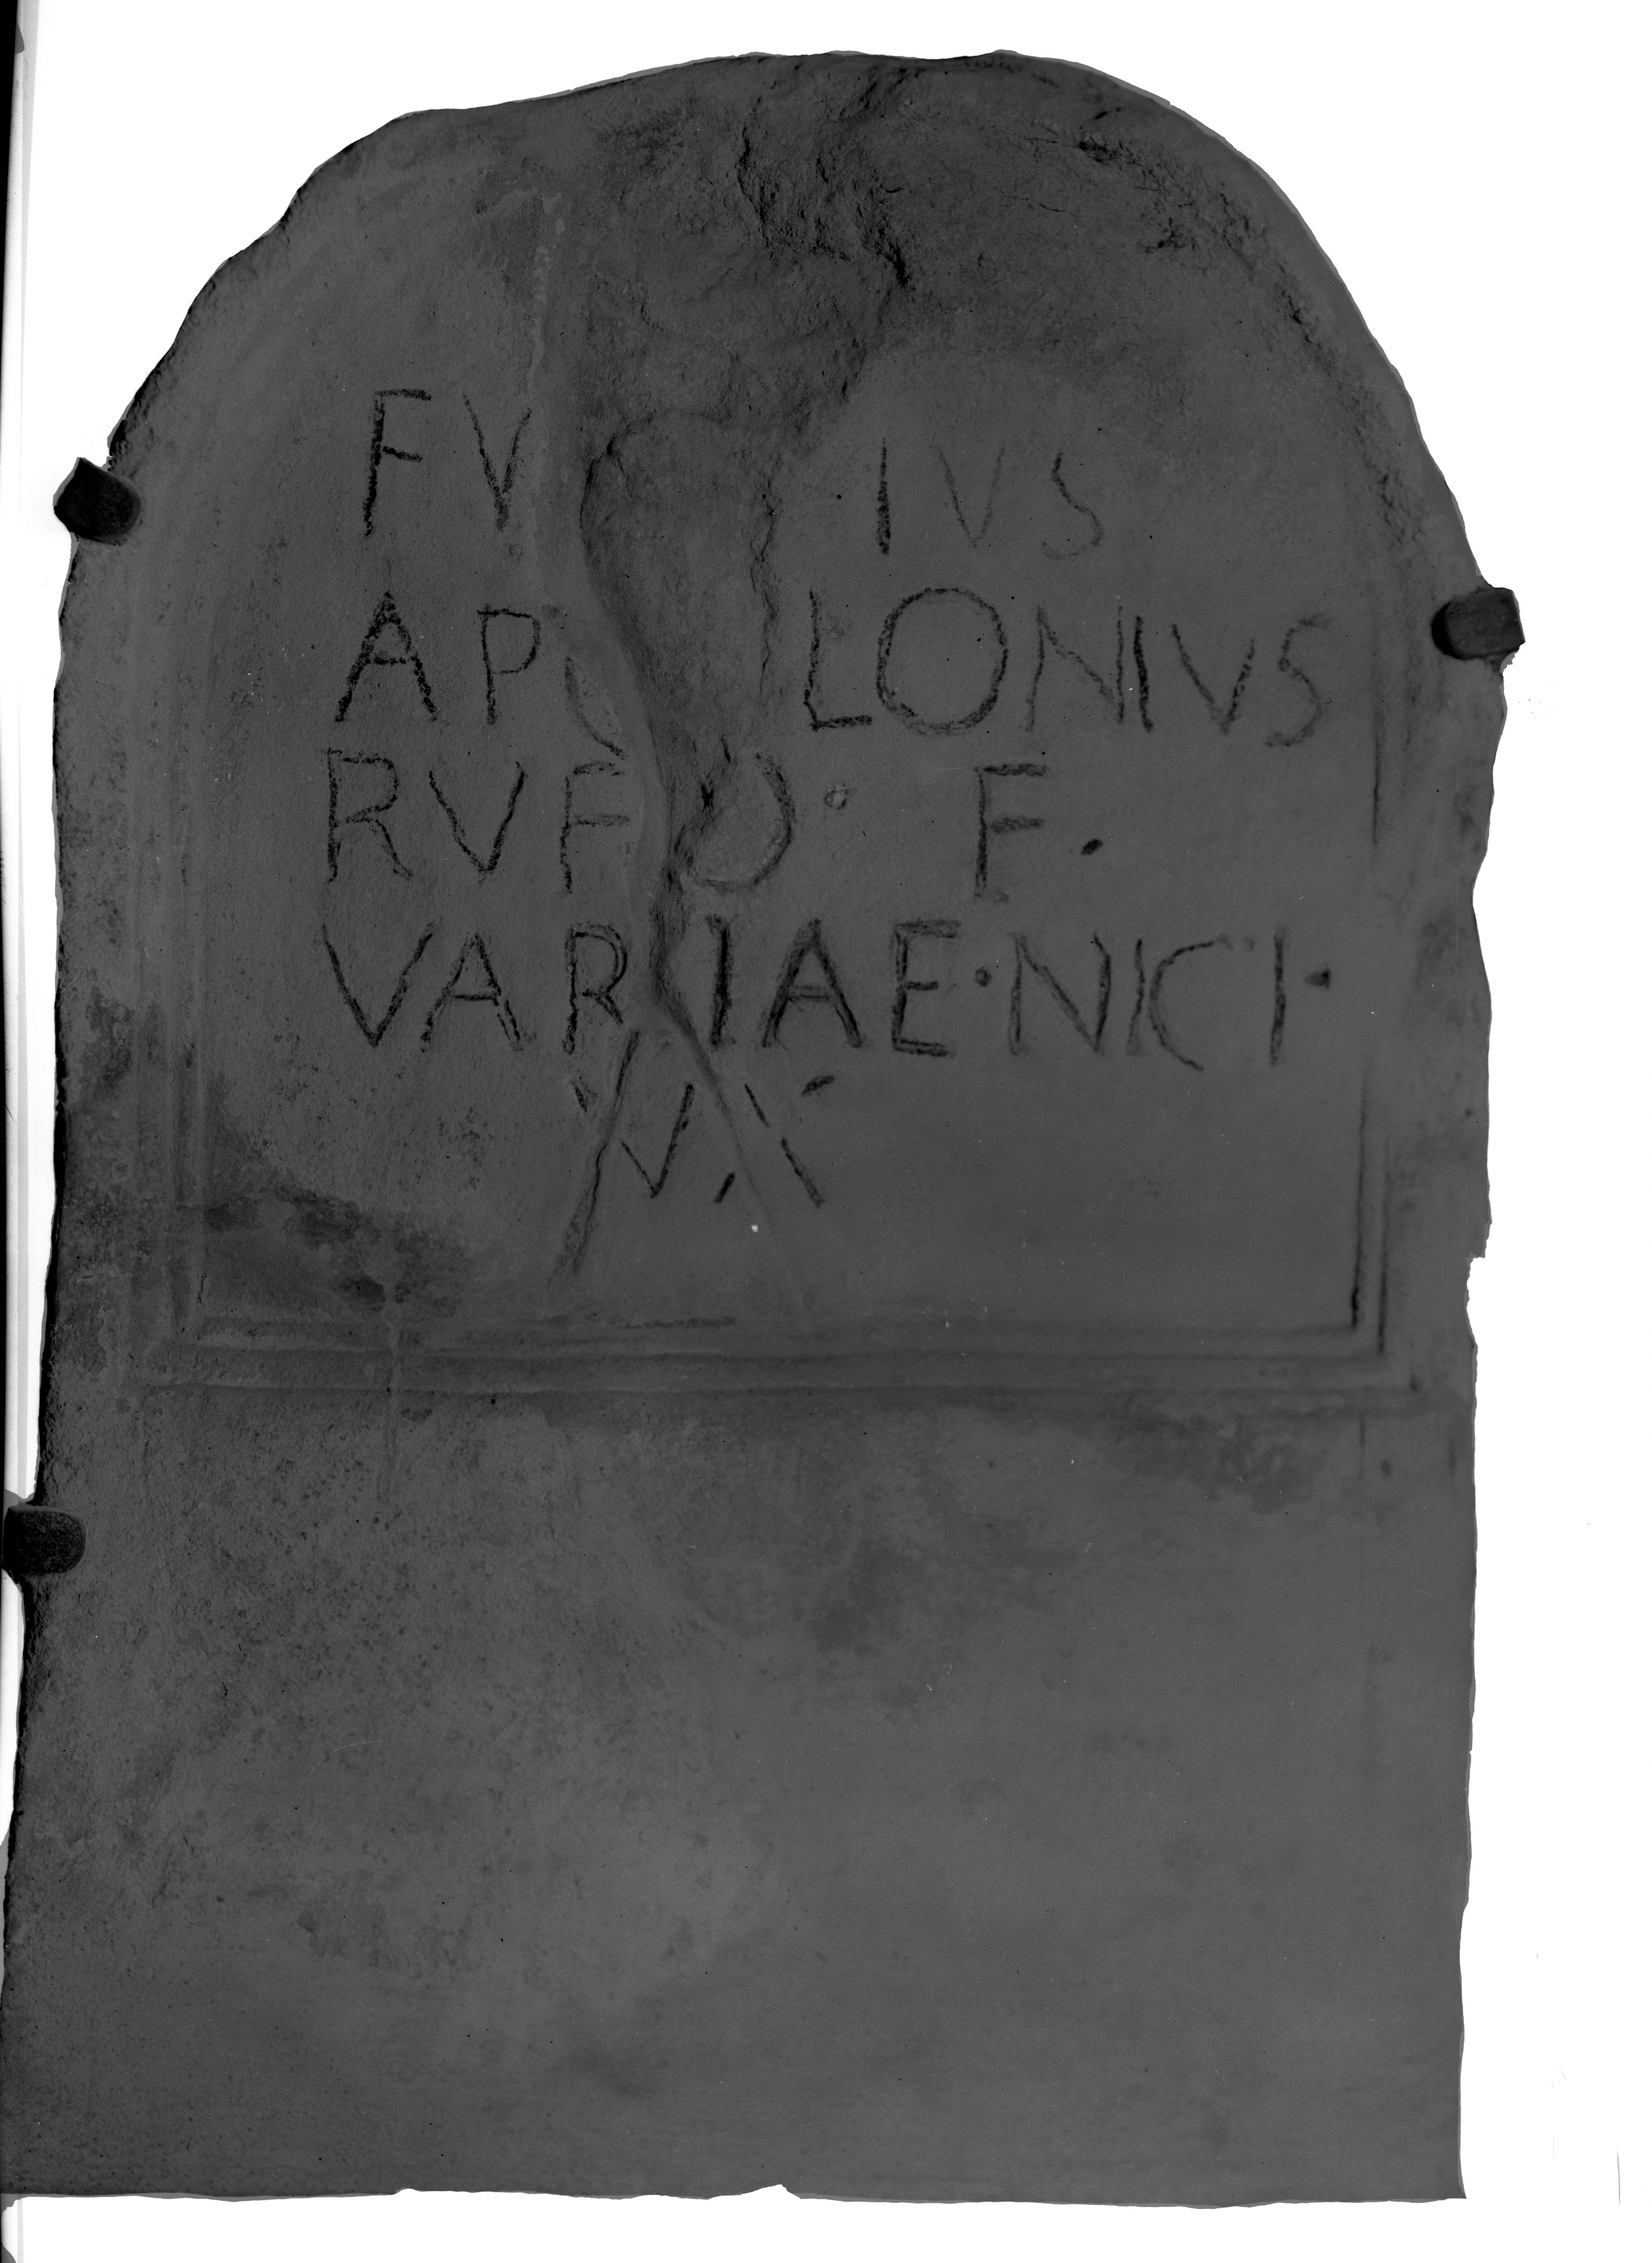 FV IVS
APOLONIVS
RVFO· F·
VARIAE·NICI·
VX